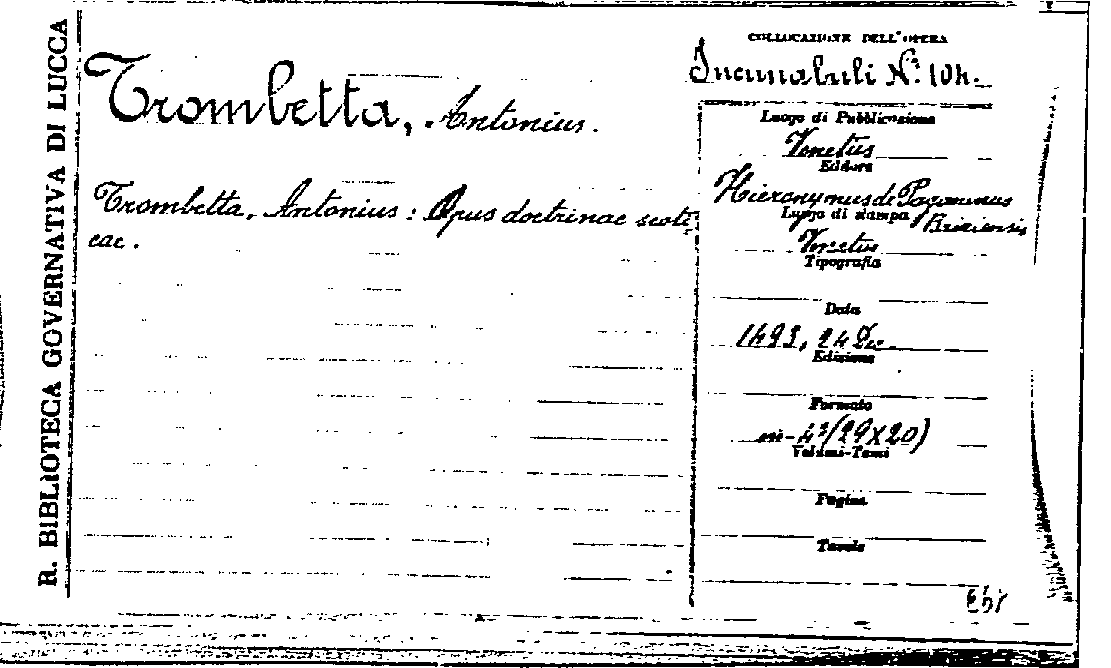 R. BIBLIOTECA GOVERNATIVA DI LUCCA
Trombetta, Antonius.
Trombetta, Antonius: Opus doctrinae scoti
cae.
COLLOCAZIONE DELL'OPERA
Incunabuli N.° 104.
Luogo di Pubblicazione
Venetiis
Editore
Hieronymus de Paganinus
Brixiensis
Luogo di stampa
Venetiis
Tipografia
Data
1493, 24 De.
Edizione
Formato
in-4°(29X20)
Volumi-Tomi
Pagine
Tavole